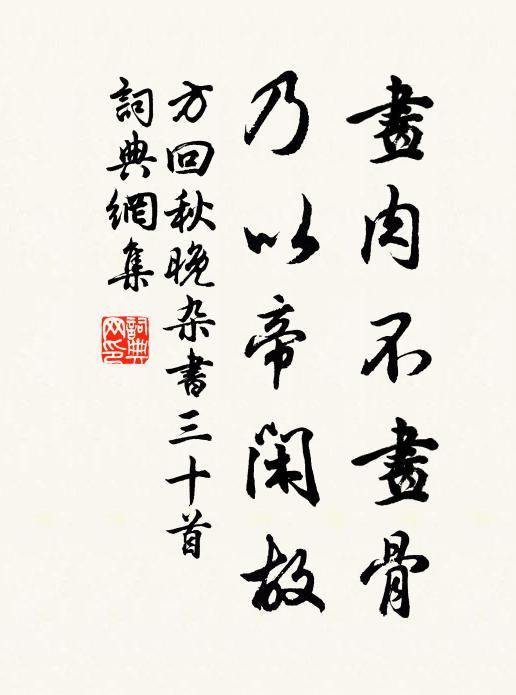 畫肉不畫骨
乃以帝閑故
方回秋晚杂書三十首
詞典網集
詞典网印